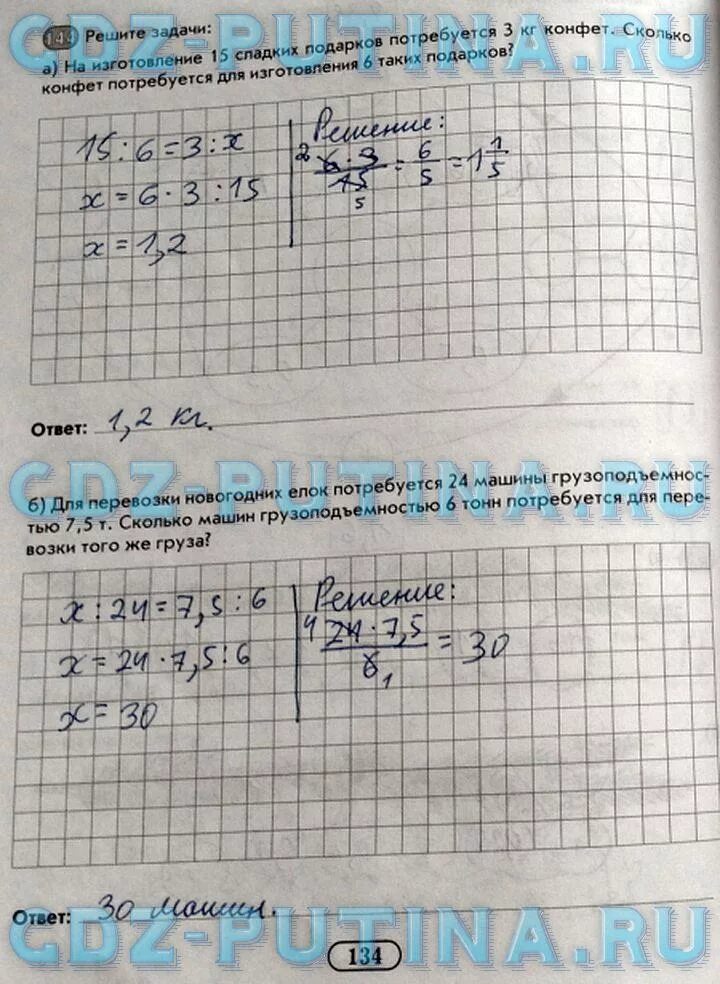 GDZ-PUTINA.RU
144 Решите задачи:
а) На изготовление 15 сладких подарков потребуется 3 кг конфет. Сколько
конфет потребуется для изготовления 6 таких подарков?
15 : 6 = 3 : x
x = 6 · 3 : 15
x = 1,2
Решение:
2 6 · 3 / 15 5 = 6/5 = 1 1/5
Ответ: 1,2 кг.
GDZ-PUTINA.RU
б) Для перевозки новогодних елок потребуется 24 машины грузоподъемнос-
тью 7,5 т. Сколько машин грузоподъемностью 6 тонн потребуется для пере-
возки того же груза?
x : 24 = 7,5 : 6
x = 24 · 7,5 : 6
x = 30
Решение:
4 24 · 7,5 / 6 1 = 30
Ответ: 30 машин.
GDZ-PUTINA.RU
134